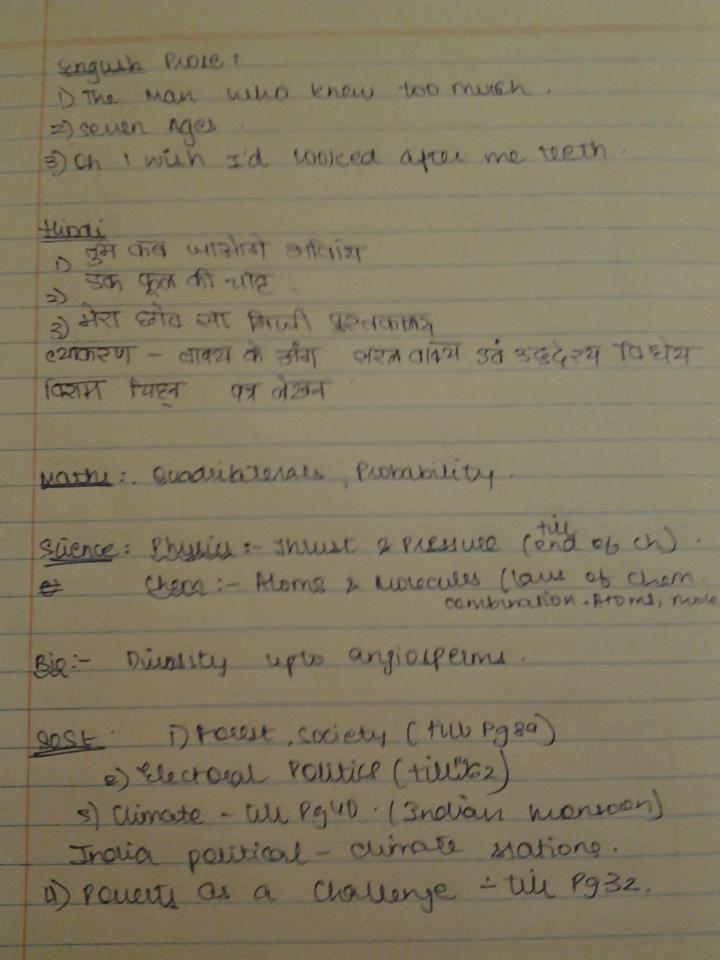 English Prose:
1) The Man who knew too much.
2) Seven Ages.
3) Oh I wish I'd looked after me teeth.
Hindi
1) तुम कब जाओगे अतिथि
2) एक फूल की चाह
3) मेरा छोटा सा निजी पुस्तकालय
व्याकरण - वाक्य के अंग सरल वाक्य एवं उद्देश्य विधेय
विराम चिह्न पत्र लेखन
Maths:- Quadrilaterals, Probability.
Science: Physics:- Thrust & Pressure (till end of ch).
Chem:- Atoms & Molecules (laws of chem.
combination. Atoms, mole
Bio:- Diversity upto angiosperms.
SOST. 1) Forest, Society (till Pg 89)
2) Electoral Politics (till Pg 62)
3) Climate - till Pg 40. (Indian monsoon)
India political - climate stations.
4) Poverty as a Challenge - till Pg 32.